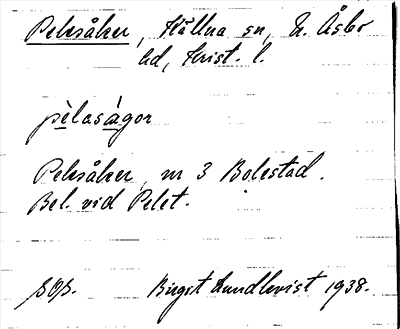 Pelsåker, Hällna sn, N. Åsbo
hd, Krist. l.
pèlaságor
Pelsåker, nr 3 Bolestad.
Bel. vid Pelet.
SOS. Birgit Lundkvist 1938.